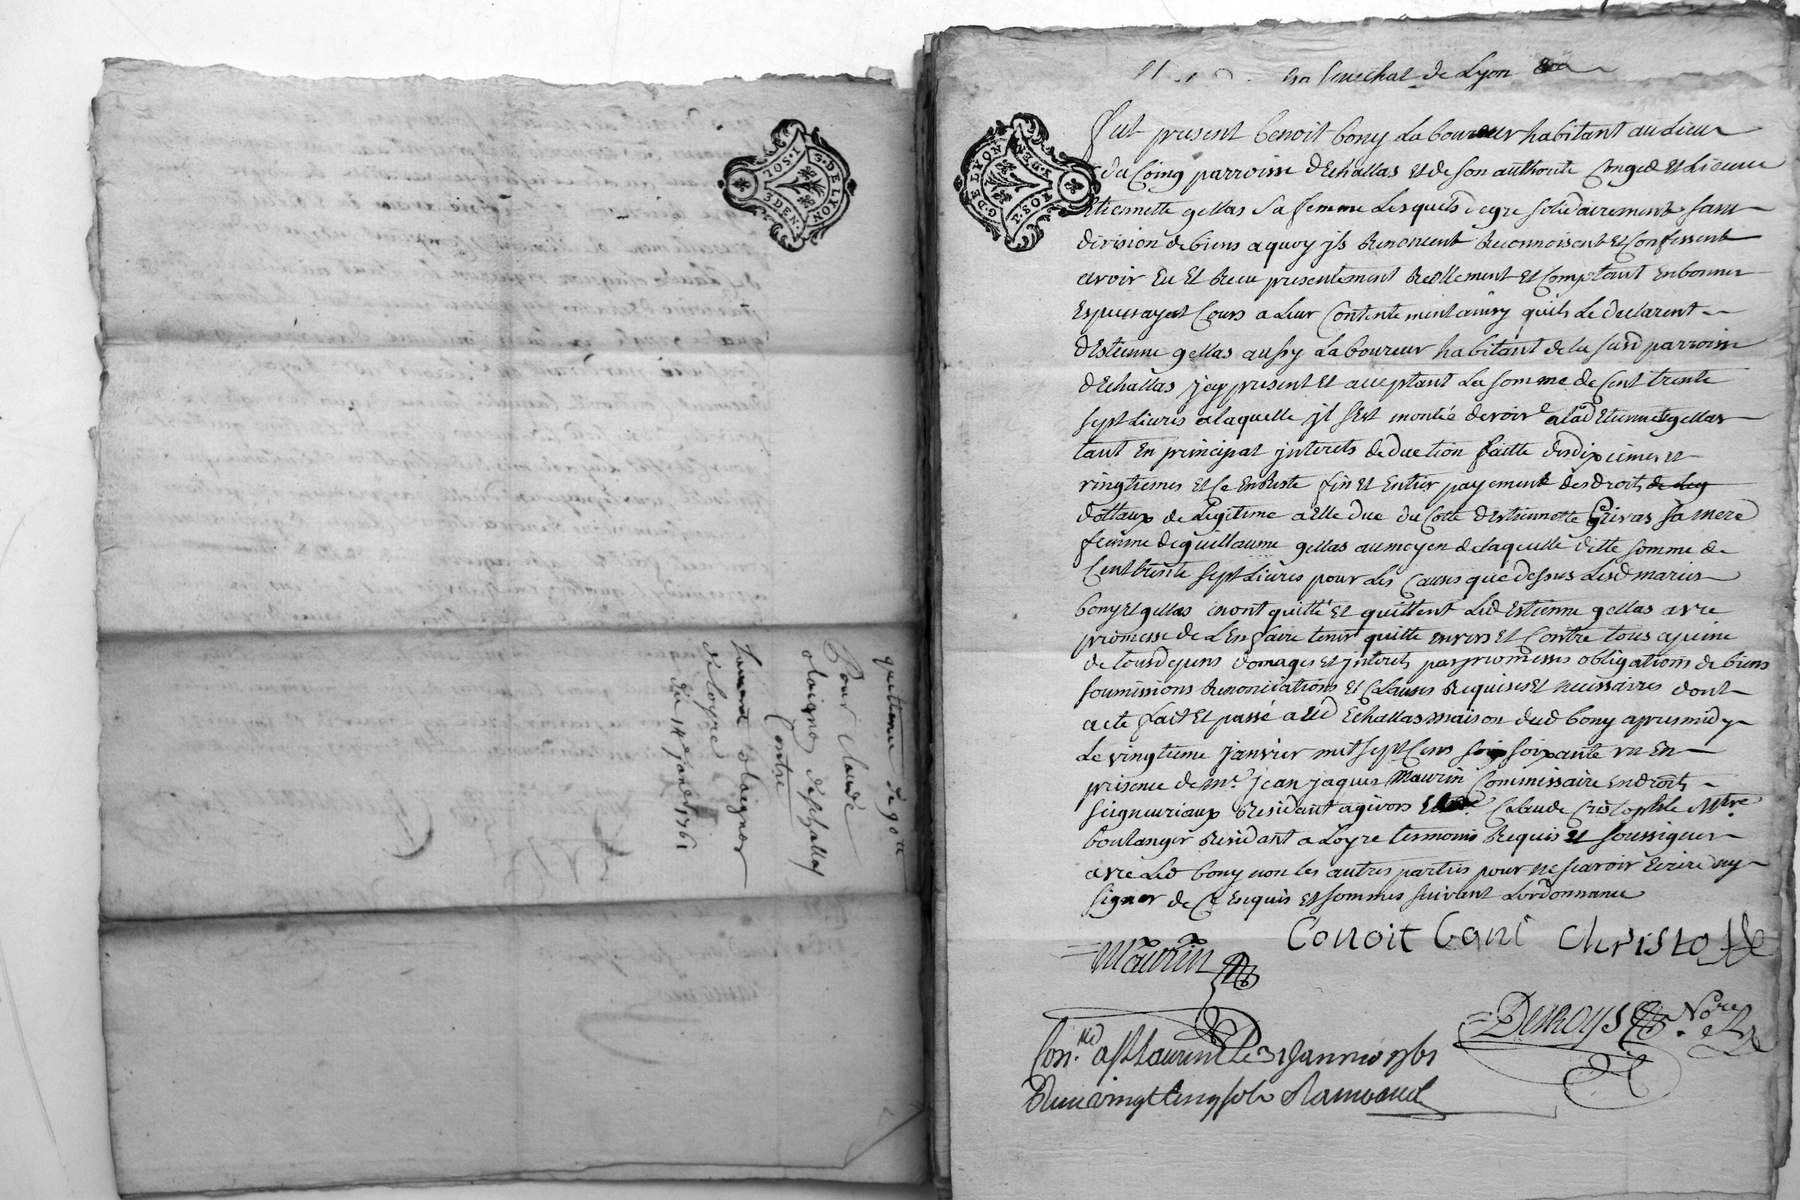 quittance de 90 lt
Pour Claude
olaignon deschallas
Contre
olaignon
de loyre
du 14e janv 1761
G. DE LYON
1. SOL
3. DEN
G. DE LYON
en senechal de Lyon
fut present benoit bony Laboureur habitant au Lieu
du Coing parroisse dEchallas et de son authorité Congé et Licence
Etiennette gellas sa femme Lesquels de gré solidairement sans
division de biens a quoy jls Renoncent Reconnoissent et Confessent
avoir Eu et Recu presentement Reellement et Comptant En bonnes
Especes ayant Cours a Leur Contentement ainsy quils Le declarent
dEstienne gellas aussy Laboureur habitant de la susd parroisse
dEchallas jcy present et acceptant La somme de Cent trente
sept Livres a laquelle jl sEst montée devoir a lad Etiennette gellas
tant En principal jnterets deduction faitte des dixiemes et
vingtiemes et Ce En Reste fin et Entier payement des droits de Leg
dottaux de Legitime a Elle due du Cotté dEstiennette Grivas sa mere
femme de guillaume gellas au moyen de laquelle ditte somme de
Cent trente sept Livres pour Les Causes que dessus Lesd mariés
bony et gellas en ont quitté et quittent Led Estienne gellas avec
promesse de L'En faire tenir quitte envers et Contre tous a peine
de tous depens domages et jnterets par promesses obligations de biens
soumissions Renonciations et Clauses Requises et necessaires dont
acte fait et passé aud Echallas maison dud bony apres midy
Le vingtieme janvier mil sept Cens soi soixante un En
presence de mr. jean jaques Maurin Commissaire En droits
seigneuriaux Residant a givors Et Claude Cristophle Mtre
boulanger Residant a Loyre temoins Requis et soussignes
avec Led bony non les autres parties pour ne scavoir Ecrire ny
signer de Ce Enquis et sommes suivant Lordonnance
Maurin
Benoit Boni Christofle
Desroys Nore
Con.lé a St Laurent Le 31 Janvier 1761
Recu vingt Cinq sols